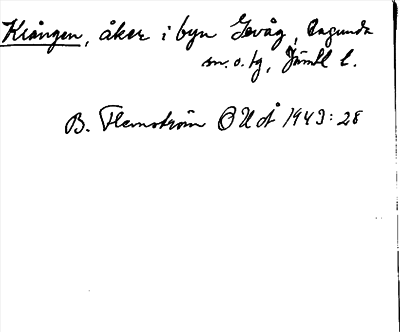 Kiången, åker i byn Gevåg, Ragunda
sn. o. tg, Jämtl l.
B. Flemström OUÅ 1943: 28